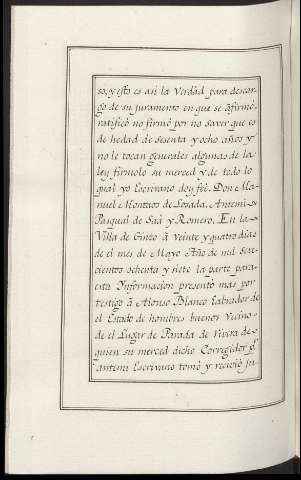 so, y esto es asi la Verdad para descar-
go de su juramento en que se afirmó,
ratificó no firmó por no saver que es
de hedad de sesenta y ocho años y
no le tocan generales algunas de la
ley firmolo su merced y de todo lo
qual yo Escrivano doy feè. Don Ma-
nuel Montero de Losada. Antemi=
Pasqual de Saà y Romero. En la
Villa de Ginzo â veinte y quatro dias
de el mes de Mayo Año de mil sete-
cientos ochenta y siete la parte para
esta Informacion presentó mas por
testigo â Alonso Blanco Labrador de
el Estado de hombres buenos Vecino
de el Lugar de Parada de Rivera de
quien su merced dicho Corregidor pr.
antemi Escrivano tomó y recivió ju-